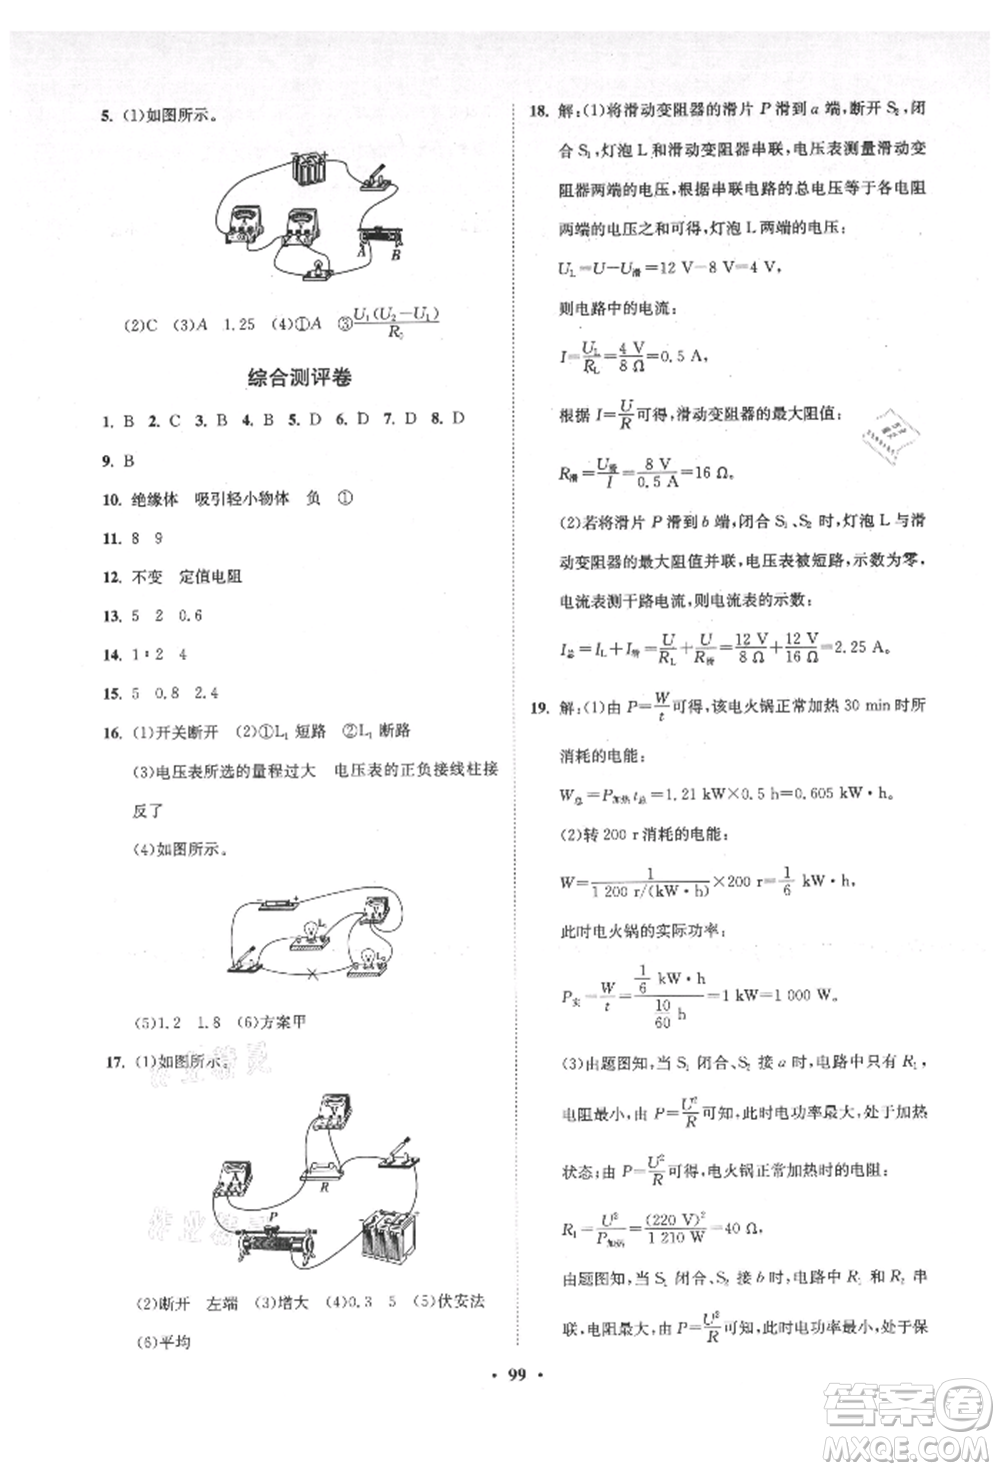 5. (1)如图所示。
A B
(2)C (3)A 1.25 (4)①A ③U₁(U₂−U₁)/R₀
综合测评卷
1. B 2. C 3. B 4. B 5. D 6. D 7. D 8. D
9. B
10. 绝缘体 吸引轻小物体 负 ①
11. 8 9
12. 不变 定值电阻
13. 5 2 0.6
14. 1∶2 4
15. 5 0.8 2.4
16. (1)开关断开 (2)①L₁ 短路 ②L₁ 断路
(3)电压表所选的量程过大 电压表的正负接线柱接
反了
(4)如图所示。
(5)1.2 1.8 (6)方案甲
17. (1)如图所示。
V
A
R
P
(2)断开 左端 (3)增大 (4)0.3 5 (5)伏安法
(6)平均
18. 解:(1)将滑动变阻器的滑片 P 滑到 a 端,断开 S₂,闭
合 S₁,灯泡 L 和滑动变阻器串联,电压表测量滑动变
阻器两端的电压,根据串联电路的总电压等于各电阻
两端的电压之和可得,灯泡 L 两端的电压:
U_L=U−U滑=12 V−8 V=4 V,
则电路中的电流:
I=U_L/R_L=4 V/8 Ω=0.5 A,
根据 I=U/R 可得,滑动变阻器的最大阻值:
R滑=U滑/I=8 V/0.5 A=16 Ω。
(2)若将滑片 P 滑到 b 端,闭合 S₁、S₂ 时,灯泡 L 与滑
动变阻器的最大阻值并联,电压表被短路,示数为零,
电流表测干路电流,则电流表的示数:
I总=I_L+I滑=U/R_L+U/R滑=12 V/8 Ω+12 V/16 Ω=2.25 A。
19. 解:(1)由 P=W/t 可得,该电火锅正常加热 30 min 时所
消耗的电能:
W总=P加热t总=1.21 kW×0.5 h=0.605 kW·h。
(2)转 200 r 消耗的电能:
W=1/(1 200 r/(kW·h))×200 r=1/6 kW·h,
此时电火锅的实际功率:
P实=W/t=(1/6 kW·h)/(10/60 h)=1 kW=1 000 W。
(3)由题图知,当 S₁ 闭合、S₂ 接 a 时,电路中只有 R₁,
电阻最小,由 P=U²/R 可知,此时电功率最大,处于加热
状态;由 P=U²/R 可得,电火锅正常加热时的电阻:
R₁=U²/P加热=(220 V)²/1 210 W=40 Ω,
由题图知,当 S₁ 闭合、S₂ 接 b 时,电路中 R₁ 和 R₂ 串
联,电阻最大,由 P=U²/R 可知,此时电功率最小,为保
· 99 ·
答案圈
MXQE.COM